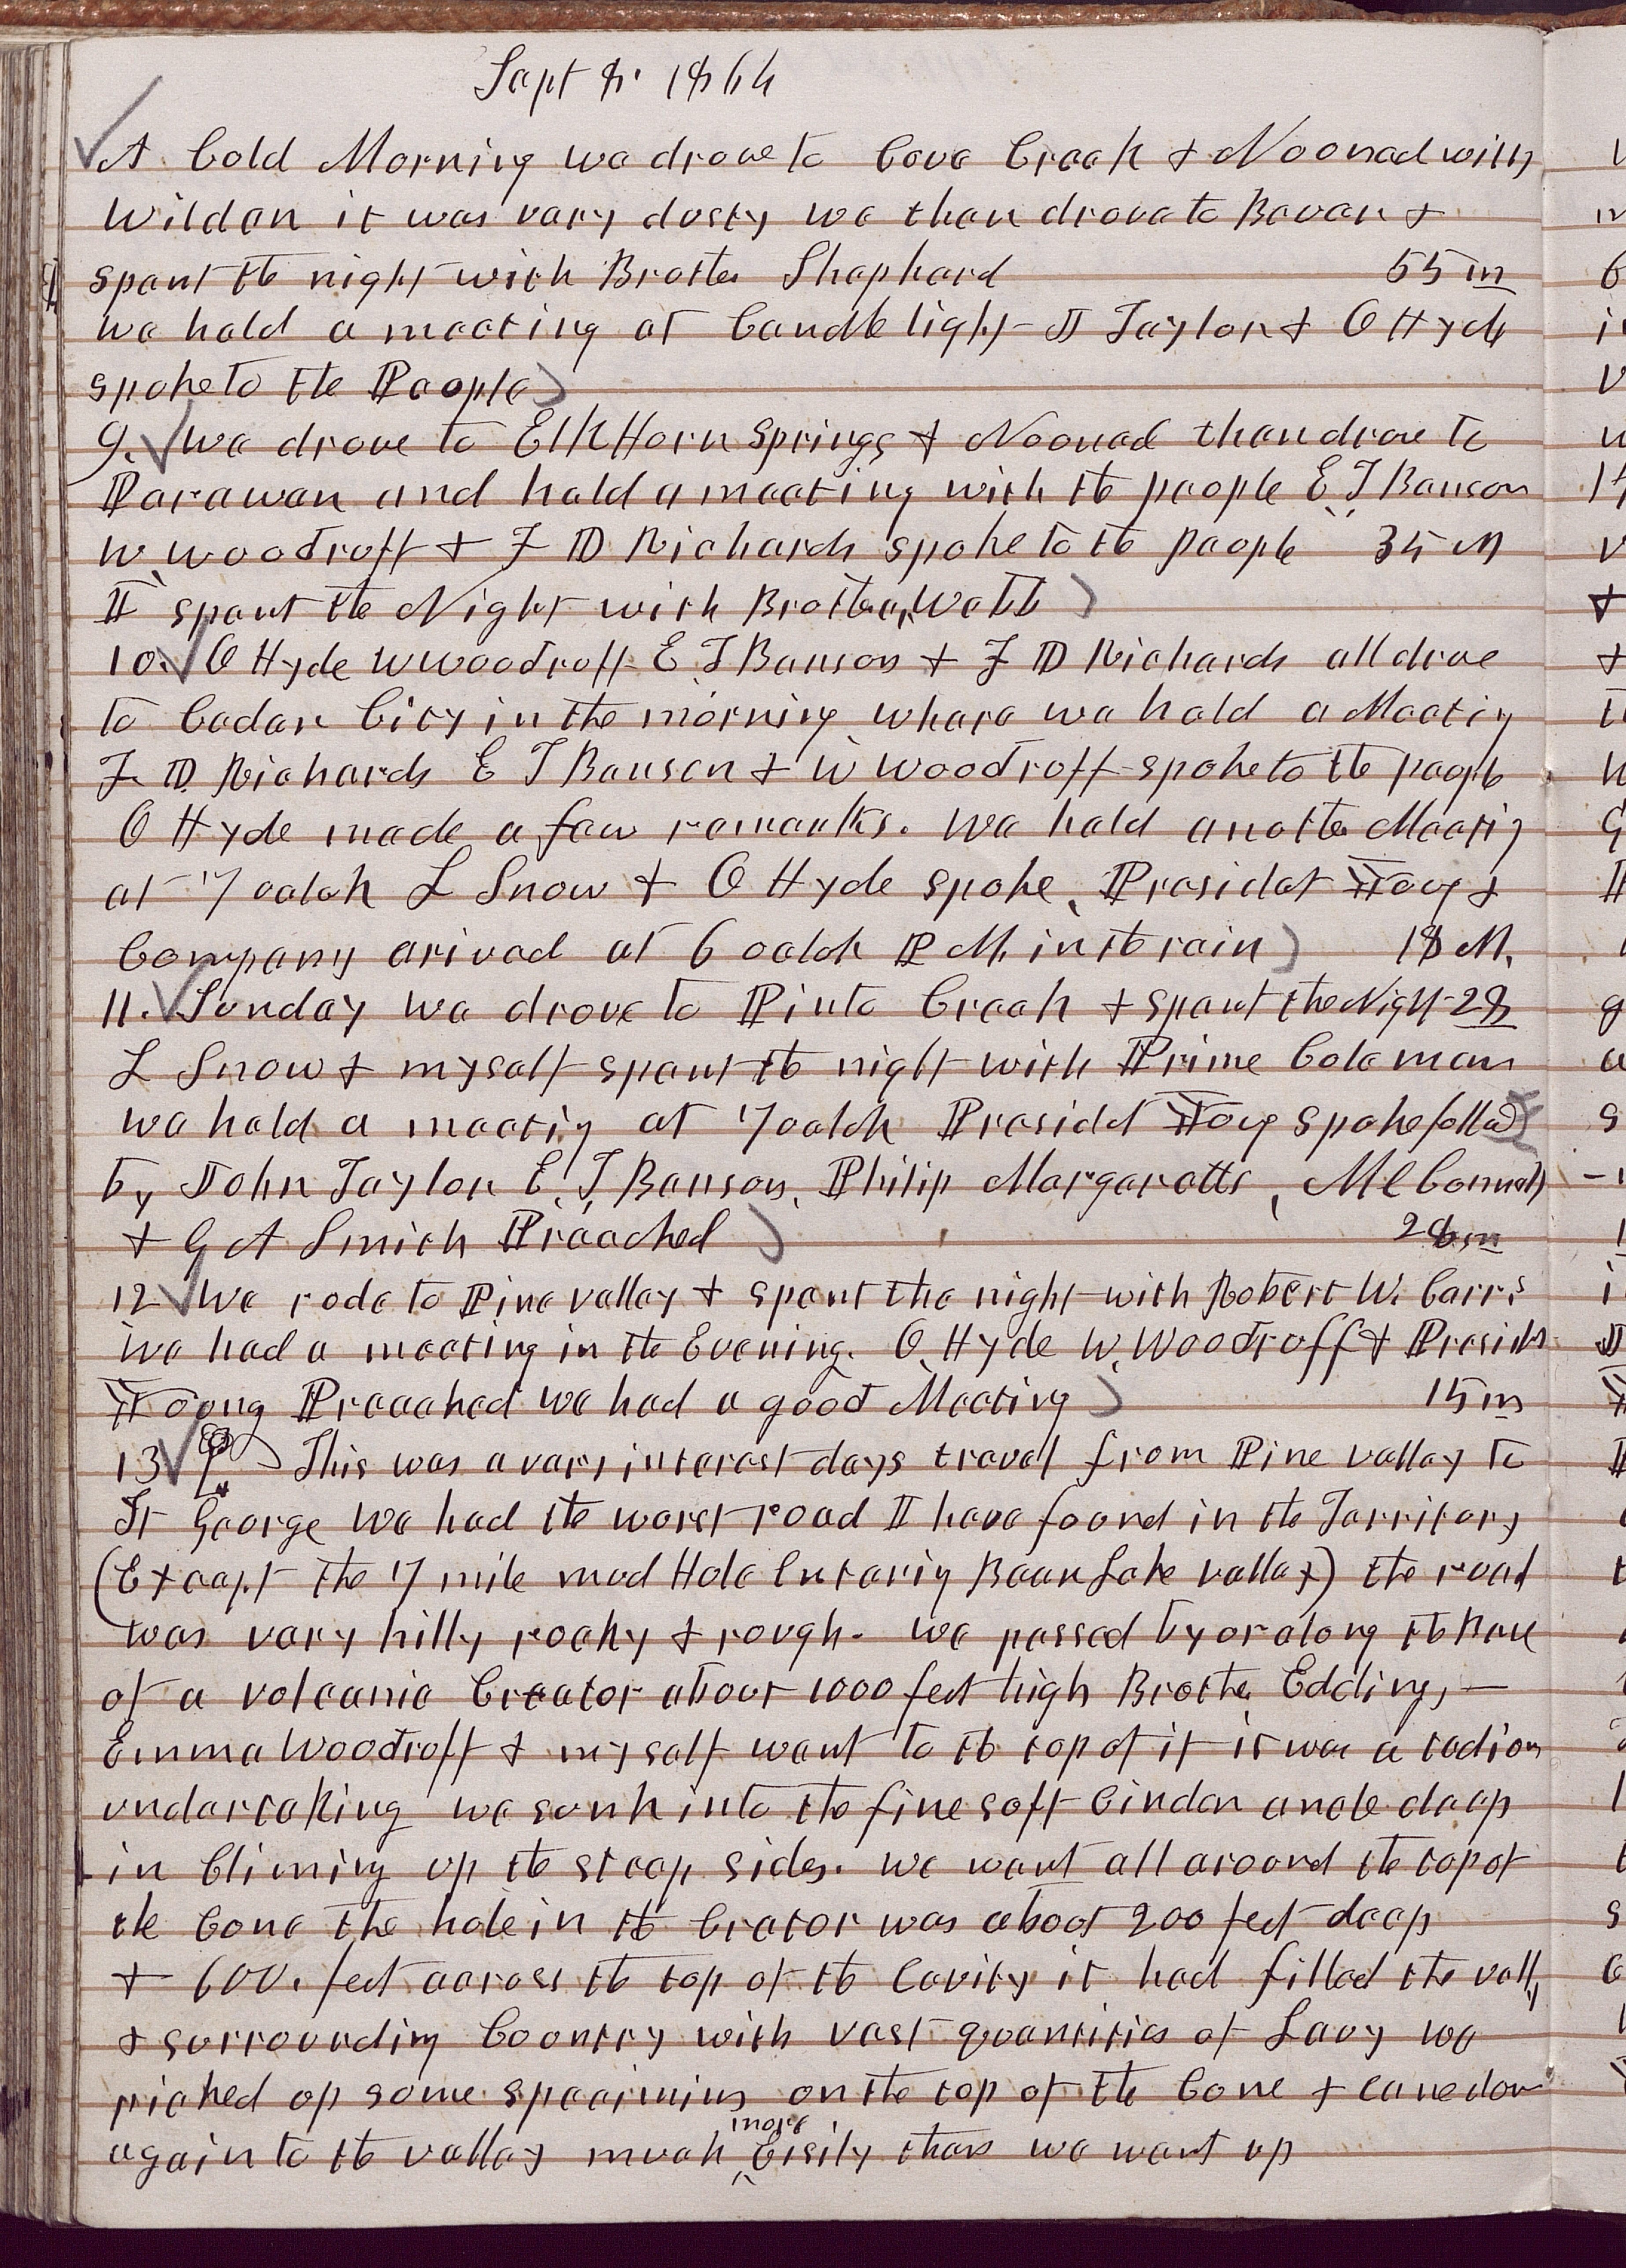 Sept 8. 1864
A Cold Morning we drove to Cove Creek & Nooned with
Wilden it was very dusty we then drove to Bever &
spent the night with Brother Shephard 55 m
we held a meeting at Candle light J Taylor & O Hyde
spoke to the People
9. We drove to Elk Horn Springs & Nooned then drove to
Parawan and held a meeting with the people E T Benson
W. Woodruff & F D Richards spoke to the people 35 M
I spent the Night with Brother Watts
10. O Hyde W Woodruff E T Benson & F D Richards all drove
to Cedar City in the morning whare we held a Meeting
F D Richards E T Benson & W Woodruff spoke to the people
O Hyde made a few remarks. We held another Meeting
at 7 oclok L Snow & O Hyde spoke, Presidet Young &
Company arived at 6 oclok P M. in the rain 18 M.
11. Sunday we drove to Pinto Creek & spent the Night 28
L Snow & myself spent the night with Prime Coleman
we held a meetig at 7 oclok Presidet Young spoke follwd
by John Taylor E. T. Benson, Philip Margaretts,
& G A Smith Preached 28 m
12 We rode to Pine valley & spent the night with Robert W.
we had a meeting in the Evening. O. Hyde W. Woodruff & Presidet
Young Preached we had a good Meeting 15 m
13 This was a very interest days travel from Pine valley to
St George We had the worst road I have found in the Territory
(Except the 7 mile mud Hole Entering Bear Lake valley) the road
was very hilly rocky & rough. we passed by or along the base
of a volcanic Creator about 1000 feet high Brother Eddings,
Emma Woodruff & myself went to the top of it it was a tedious
undertaking we sunk into the fine soft Cinder ancle deep
in Climing up the steep sides. we went all around the top of
the Cone the hole in the Crator was about 200 feet deep
& 600. feet across the top of the Cavity it had filled the vally
& surrounding Country with vast quantities of Lavy we
picked up some specimins on the top of the Cone & came down
again to the valley much more Eisily than we went up